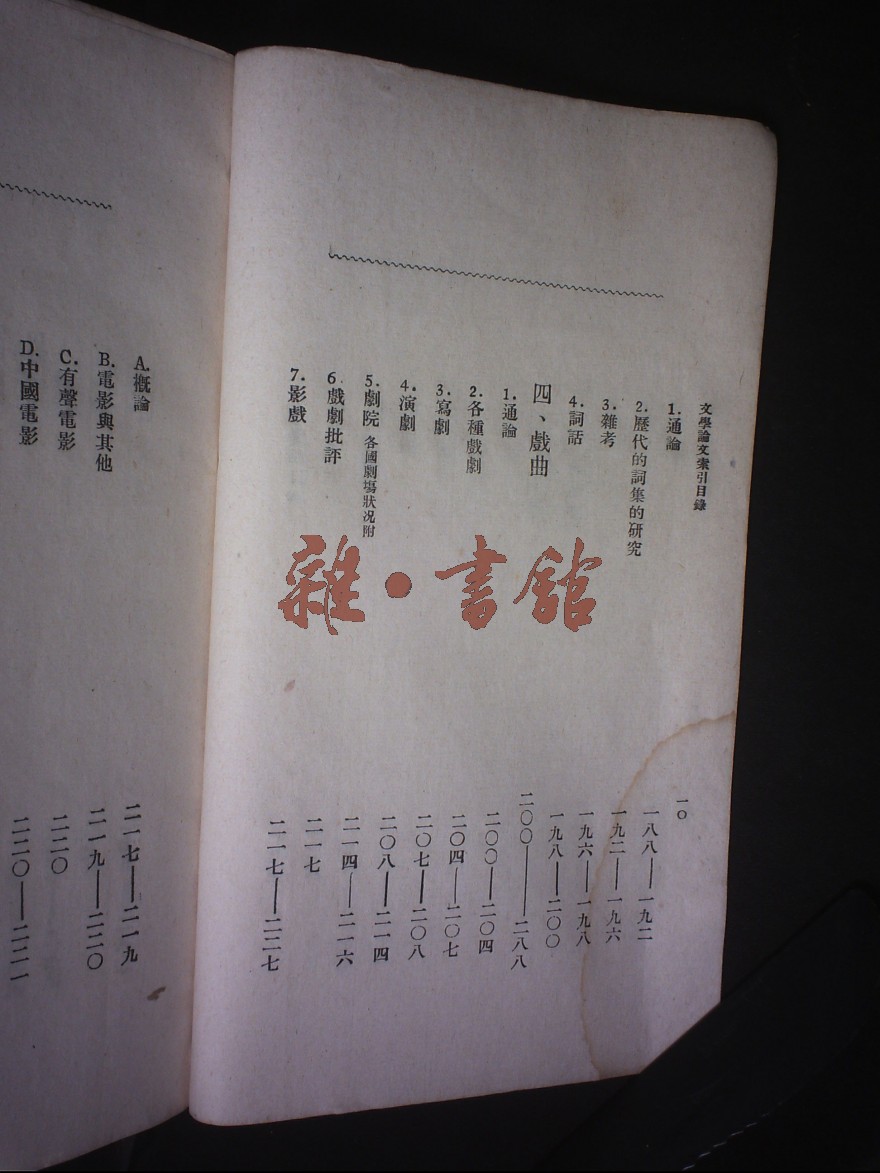 文學論文索引目錄 一〇
1.通論 一八八——一九二
2.歷代的詞集的研究 一九二——一九六
3.雜考 一九六——一九八
4.詞話 一九八——二〇〇
四、戲曲 二〇〇——二八八
1.通論 二〇〇——二〇四
2.各種戲劇 二〇四——二〇七
3.寫劇 二〇七——二〇八
4.演劇 二〇八——二一四
5.劇院 各國劇塲狀况附 二一四——二一六
6.戲劇批評 二一七
7.影戲 二一七——二二七
A.概論 二一七——二一九
B.電影與其他 二一九——二二〇
C.有聲電影 二二〇
D.中國電影 二二〇——二二一
雜·書館